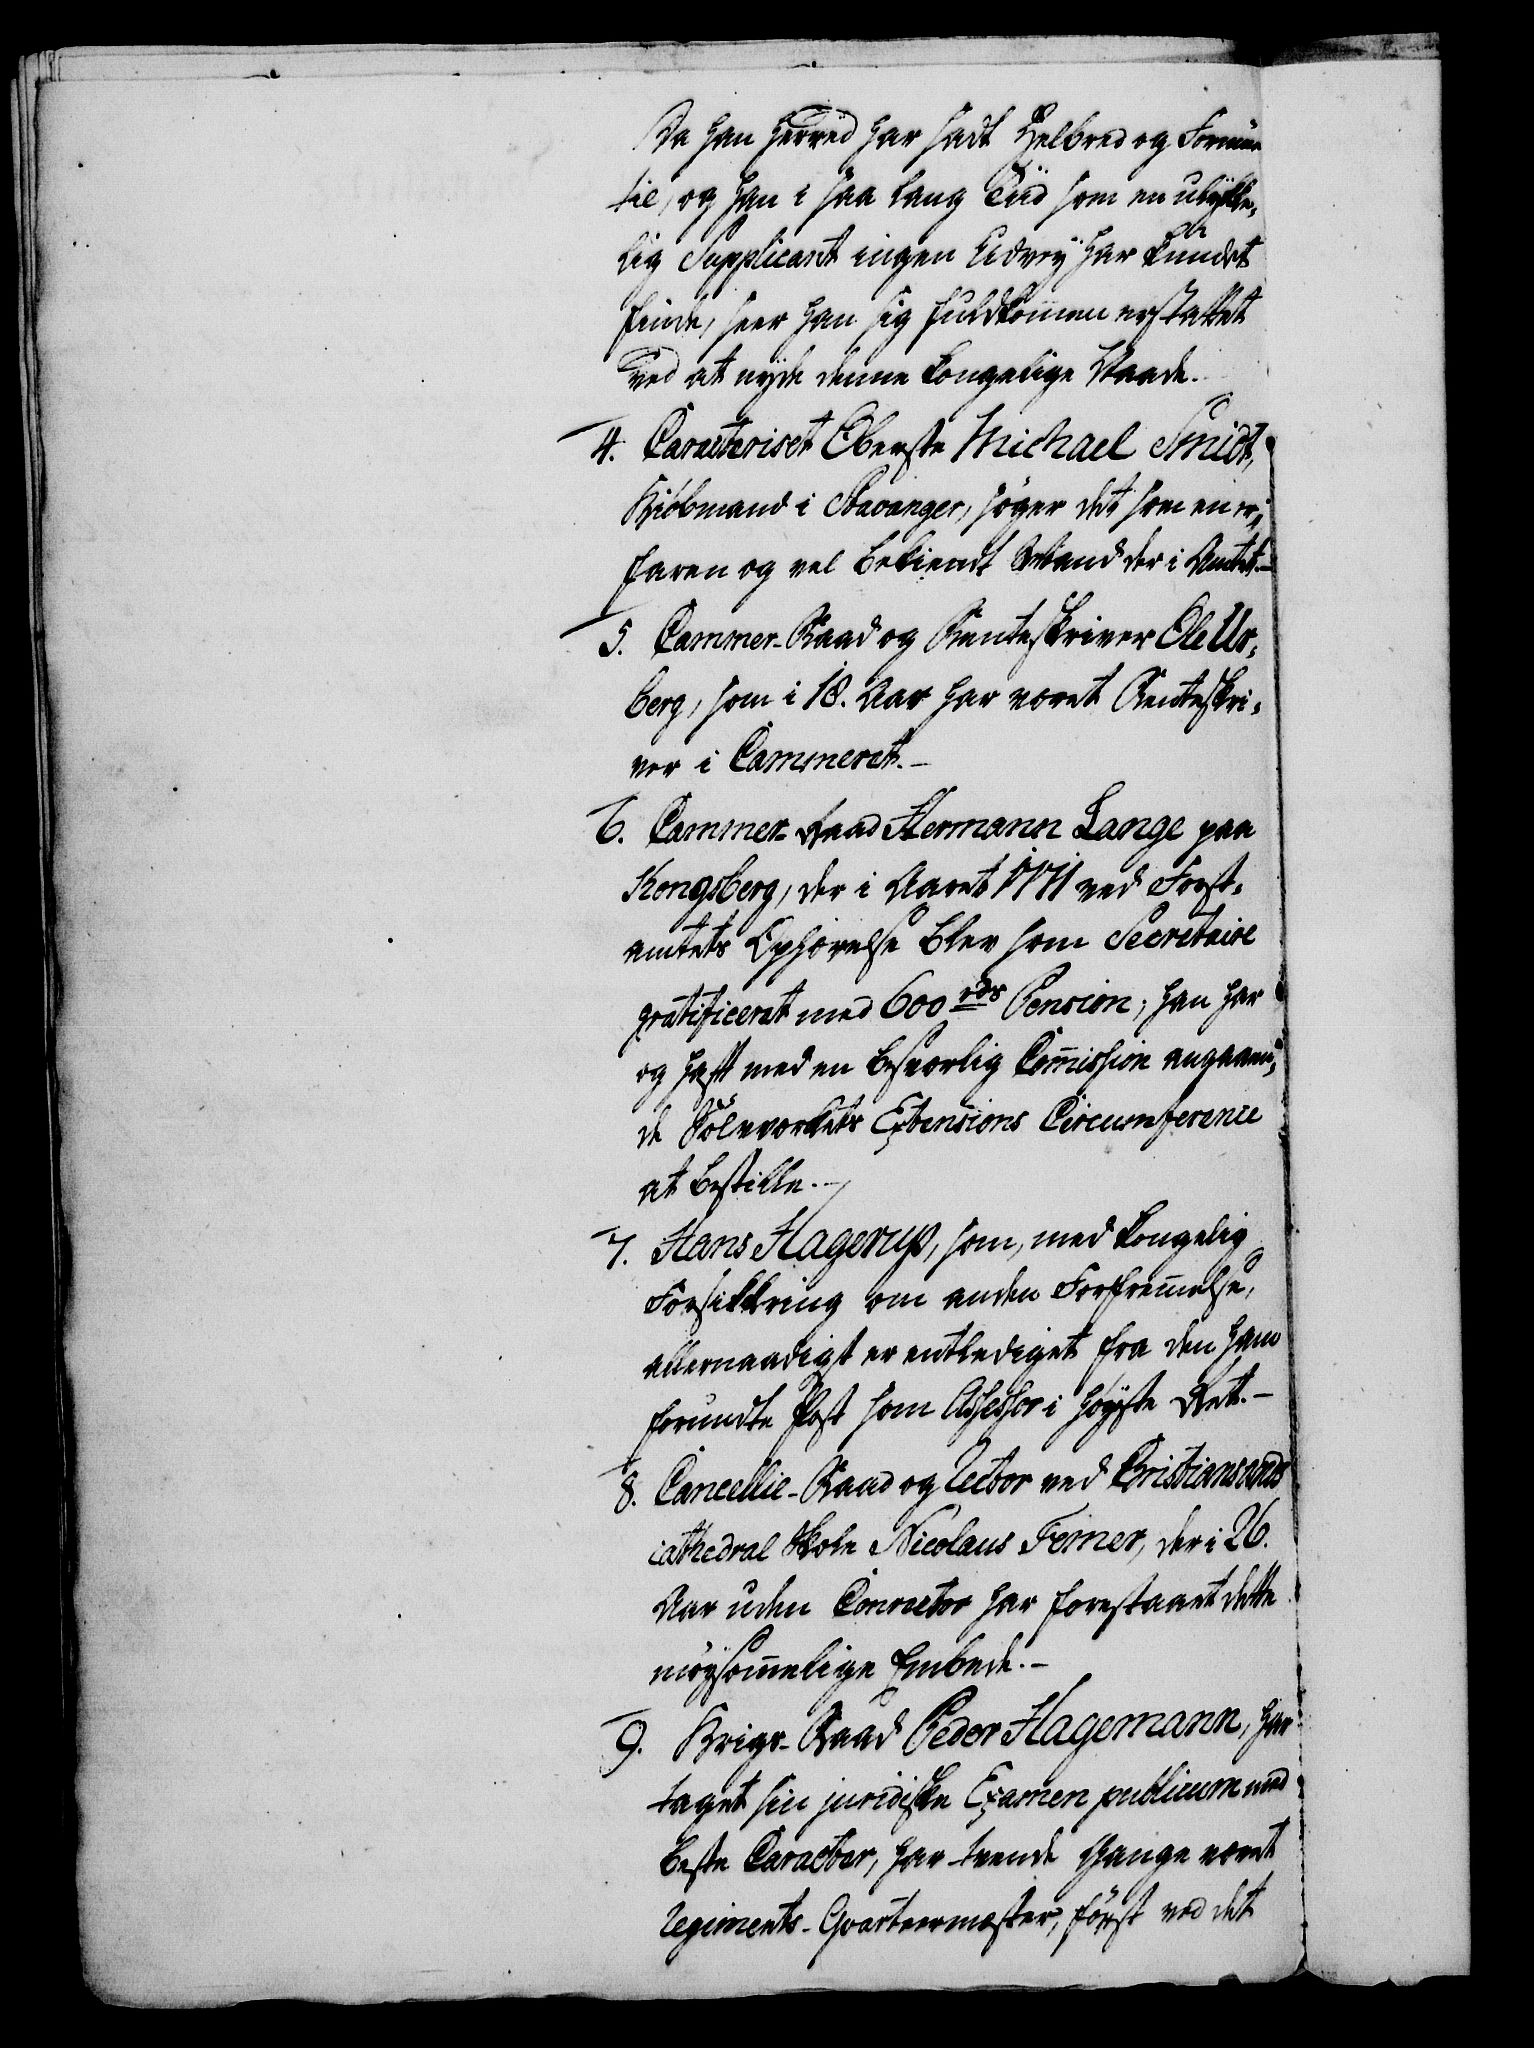 Da han herved har hadt Helbred og Formue
til, og han i saa lang Tiid som en ulykke-
lig Supplicant ingen Udvey har kundet
finde, seer han sig fuldkommen erstattet
ved at nyde denne Kongelige Naade.
4. Caracteriset Oberste Michael Smidt,
Kiøbmand i Stavanger, søger det som en er-
faren og vel bekiendt Mand der i Amtet.-
5. Cammer-Raad og Renteskriver Ole Ur-
berg, som i 18. Aar har været Renteskri-
ver i Cammeret.-
6. Cammer-Raad Hermann Lange paa
Kongsberg, der i Aaret 1771 ved Forst-
amtets Ophævelse blev som Secretaire
gratificeret med 600 rdr Pension; han har
og haft med en besværlig Commission angaaen-
de Sølvværkets Extensions Circumference
at bestille.-
7. Hans Hagerup, som, med Kongelig
Forsikkring om anden Forfremmelse,
allernaadigst er entlediget fra den ham
forundte Post som Assessor i Høyeste Ret.-
8. Cancellie-Raad og Rector ved Christiansands
cathedral Skole Nicolaus Femer, der i 26.
Aar uden Conrector har forestaaet dette
møysommelige Embede.-
9. Krigs-Raad Peder Hagemann, har
taget sin juridiske Examen publicum med
beste Caracter, har trende Gange været
Regiments-Qvarteermester, først ved det